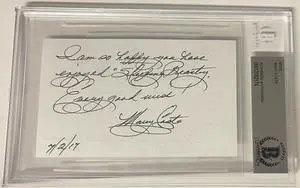 I am so happy you have
enjoyed "Sleeping Beauty
Every good wish
Mary Costa
7/2/17
BECKETT